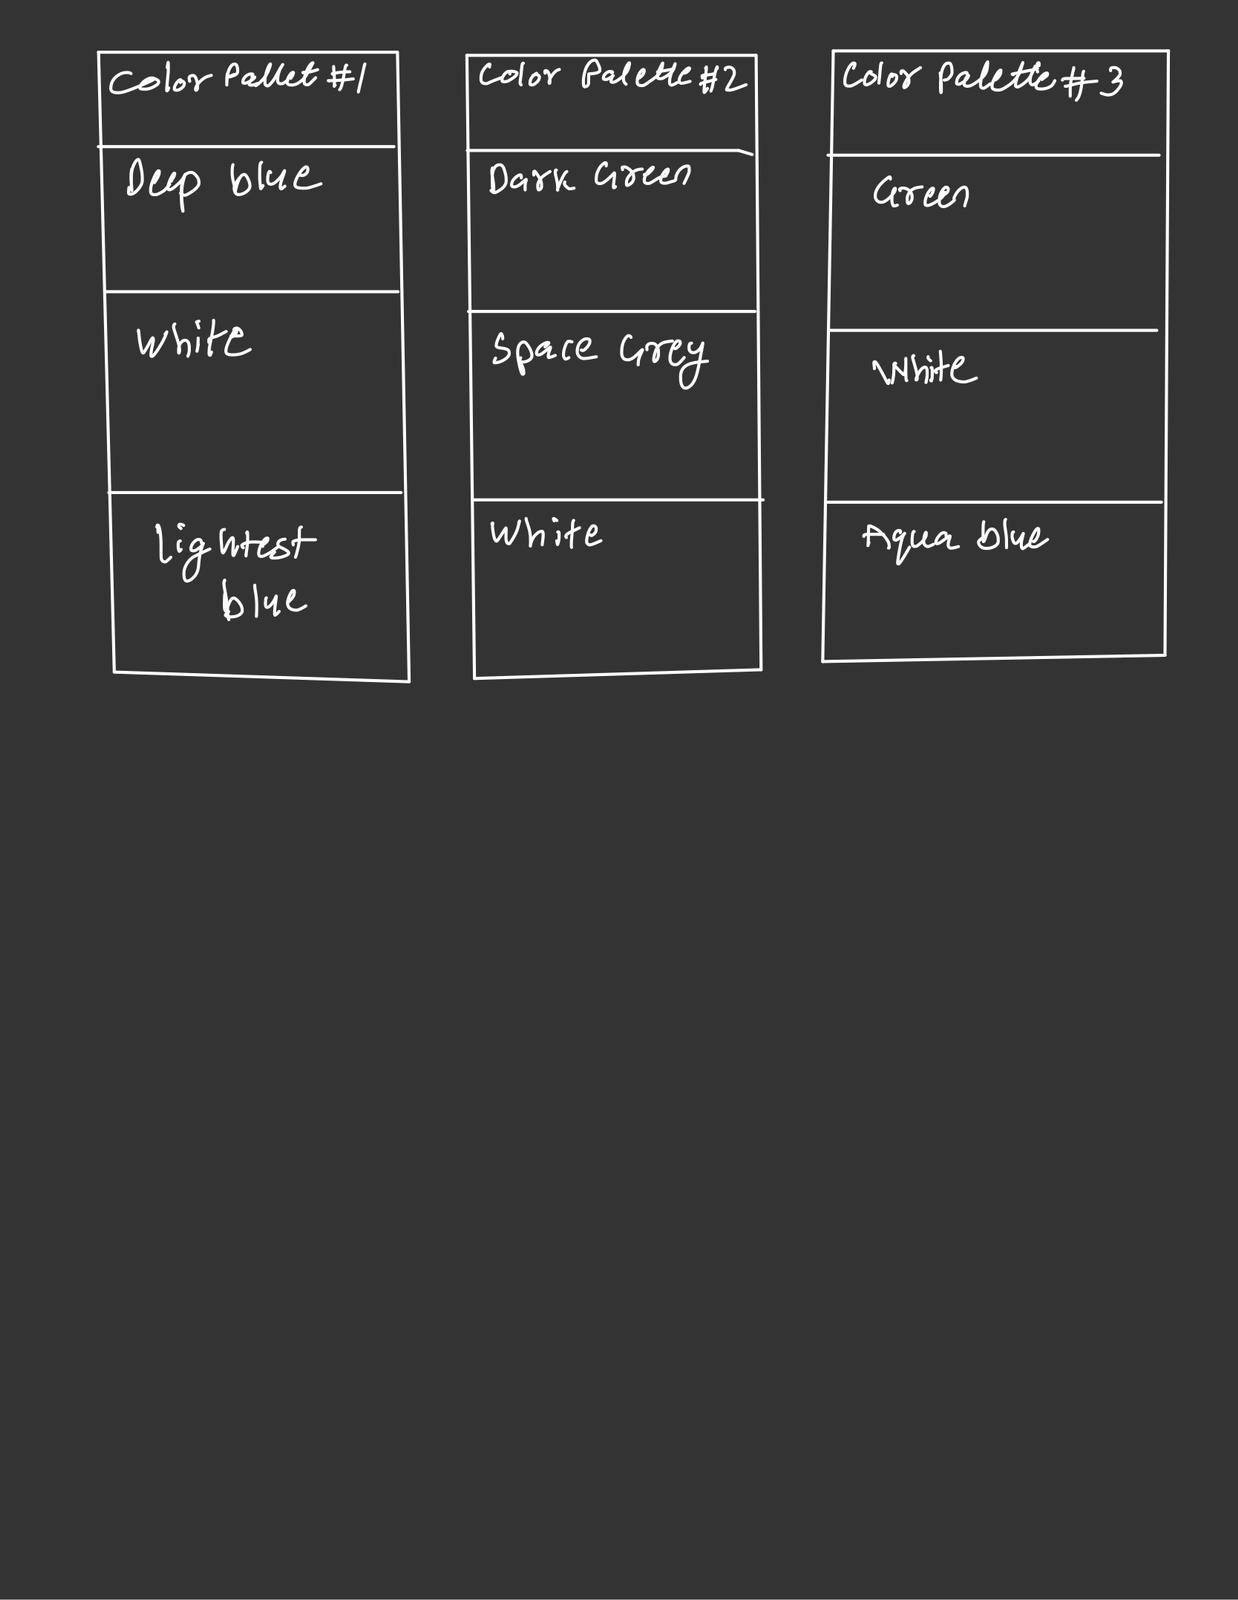 Color Pallet #1
Deep blue
White
Lightest
blue
Color Palette #2
Dark Green
Space Grey
White
Color Palette #3
Green
White
Aqua blue